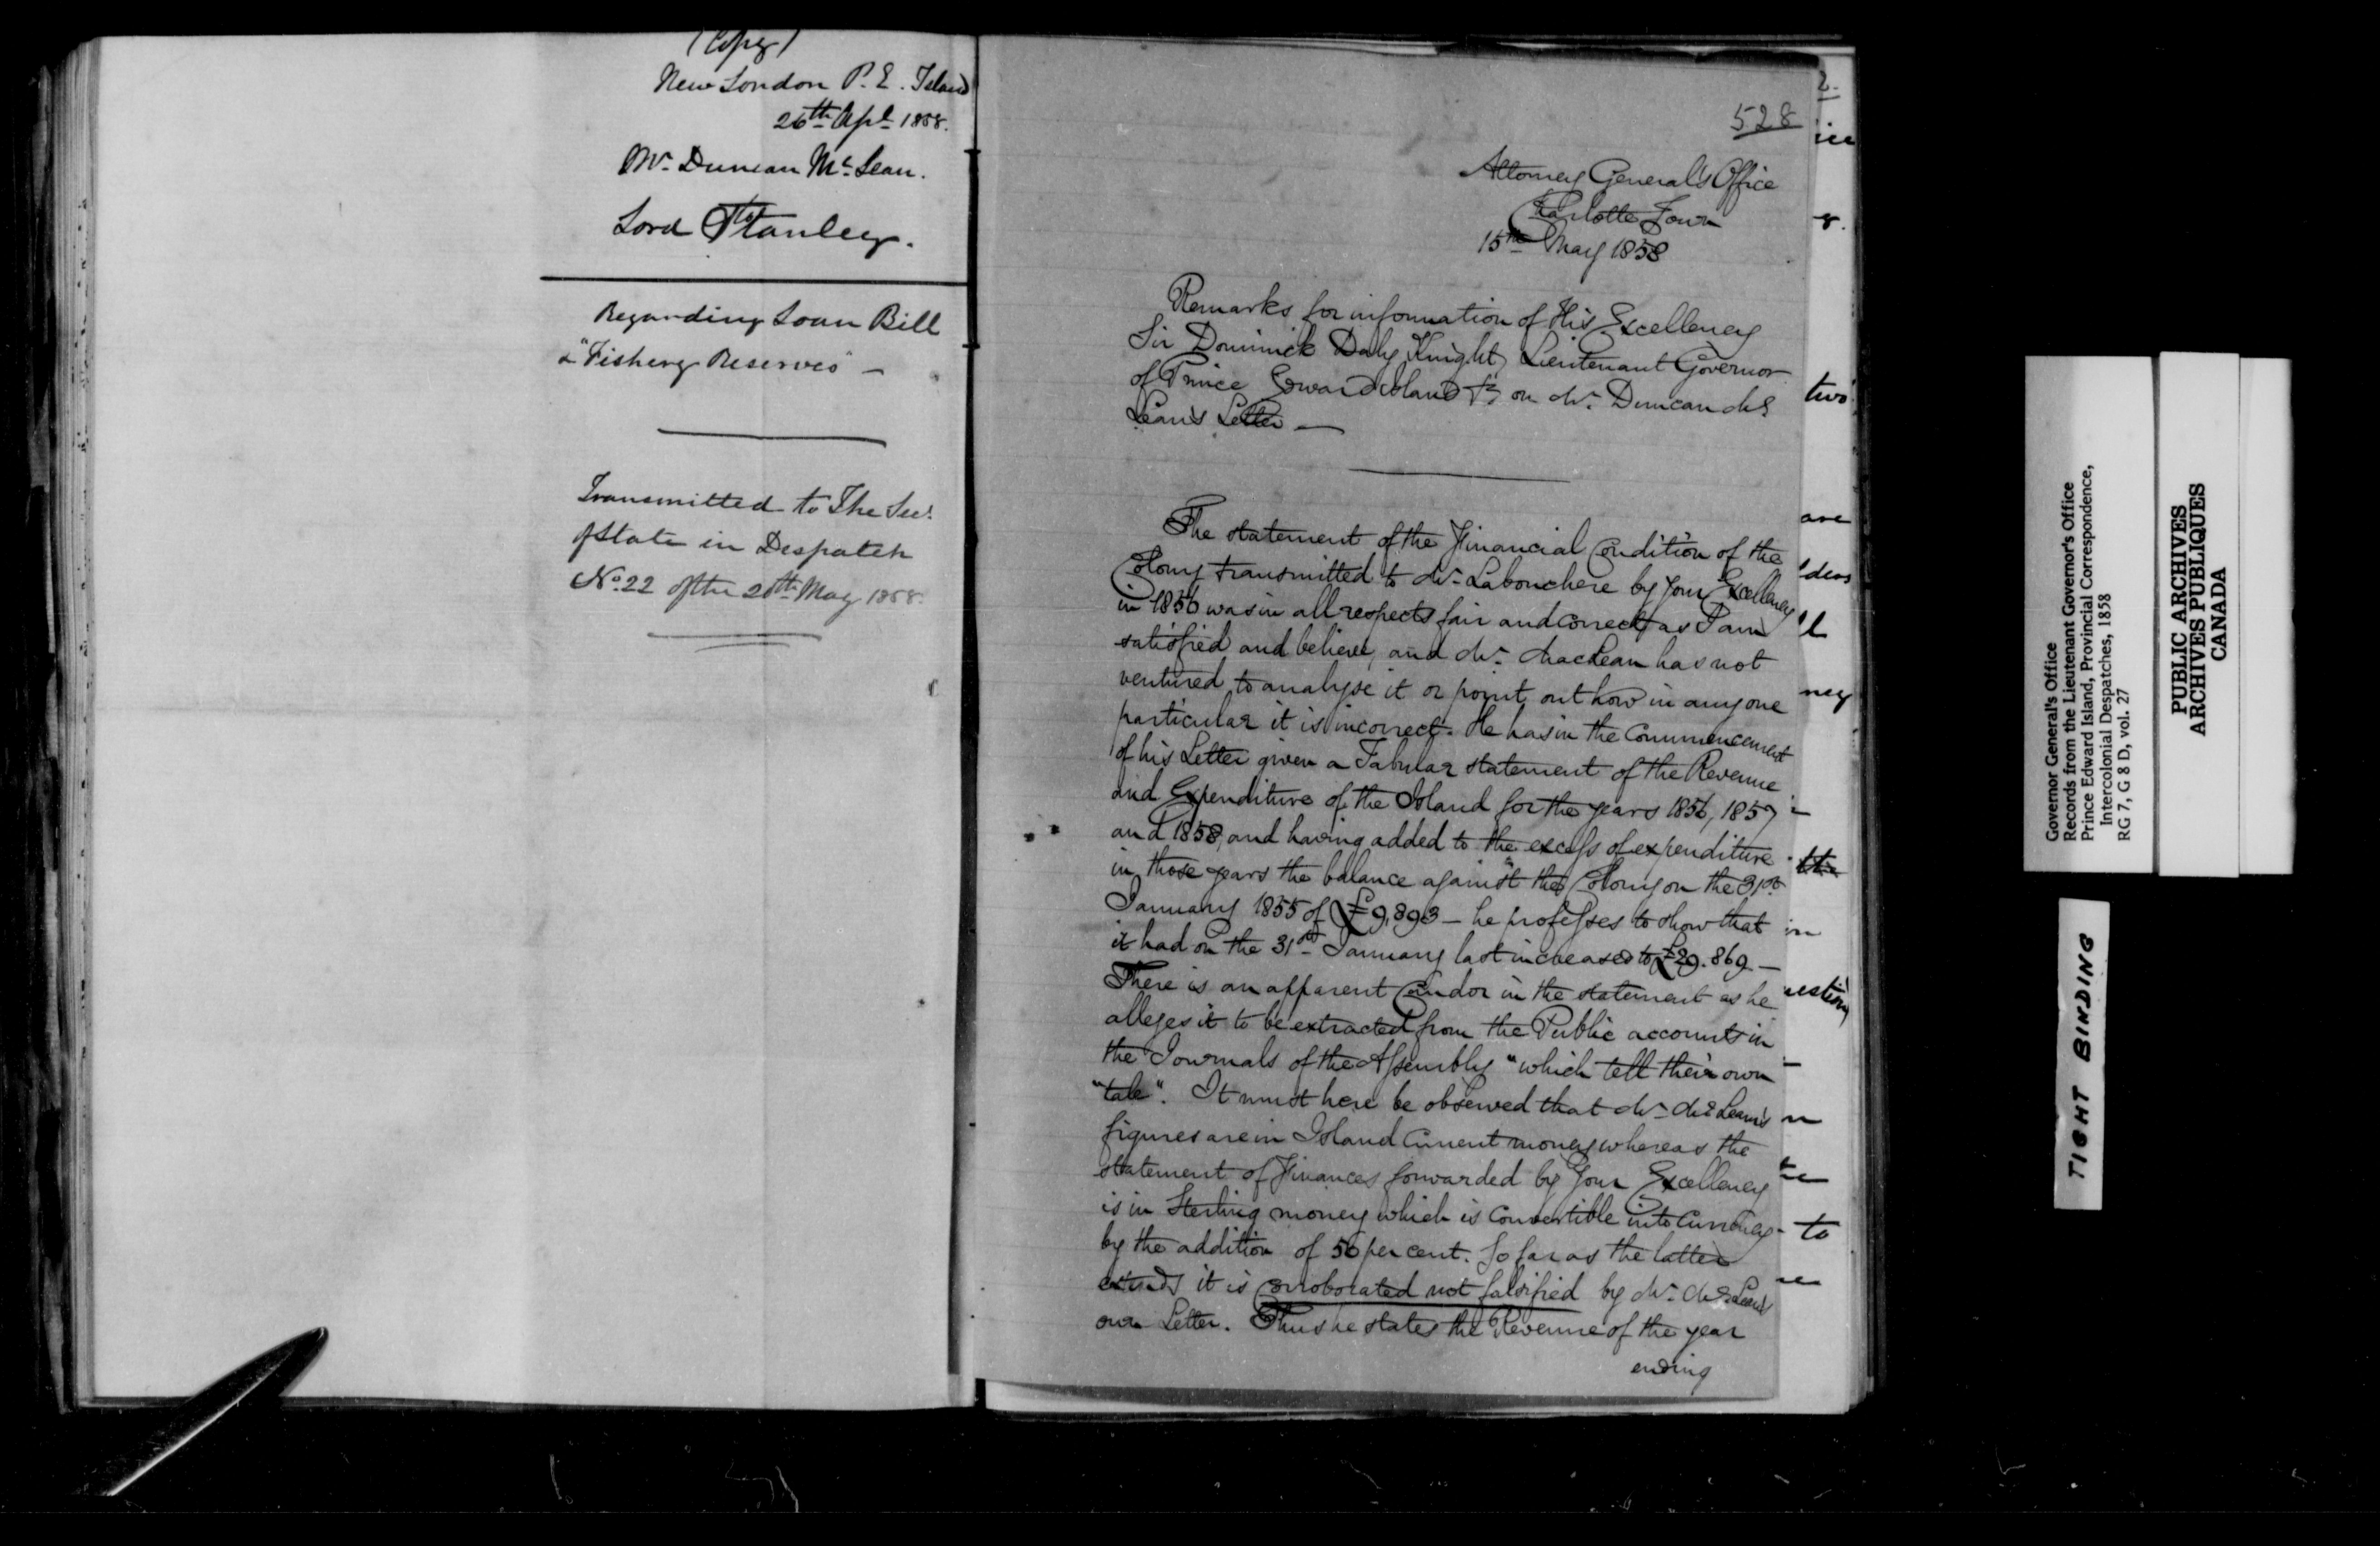 (Copy)
New London P. E. Island
26th Apl 1858.
Mr. Duncan Mc Lean.
to
Lord Stanley.
Regarding Loan Bill
& "Fishery Reserves" —
Transmitted to The Secy.
of State in Despatch
No. 22 of the 20th May 1858.
528
Attorney General's Office
Charlotte Town
15th May 1858
Remarks for information of His Excellency
Sir Dominick Daly Knight, Lieutenant Governor
of Prince Edward Island &c on Mr. Duncan Mc
Lean's Letter —
The statement of the Financial Condition of the
Colony transmitted to Mr. Labouchere by Your Excellency
in 1856 was in all respects fair and correct, as I am
satisfied and believe, and Mr. MacLean has not
ventured to analyse it or point out how in any one
particular it is incorrect. He has in the Commencement
of his Letter given a Tabular statement of the Revenue
and Expenditure of the Island for the years 1856, 1857
and 1858, and having added to the excess of expenditure
in those years the balance against the Colony on the 31st
January 1855 of £9,893 — he professes to show that
it had on the 31st January last increased to £29.869 —
There is an apparent Candor in the statement as he
alleges it to be extracted from the Public accounts in
the Journals of the Assembly "which tell their own
"tale". It must here be observed that Mr. McLean's
figures are in Island Current money whereas the
statement of Finances forwarded by Your Excellency
is in Sterling money which is Convertible into Currency
by the addition of 50 per cent. So far as the latter
extends it is Corroborated not falsified by Mr. McLean's
own Letter. Thus he states the Revenue of the year
ending
two
are
ney
the
in
uestion
to
Governor General's Office
Records from the Lieutenant Governor's Office
Prince Edward Island, Provincial Correspondence,
Intercolonial Despatches, 1858
RG 7, G 8 D, vol. 27
PUBLIC ARCHIVES
ARCHIVES PUBLIQUES
CANADA
TIGHT BINDING